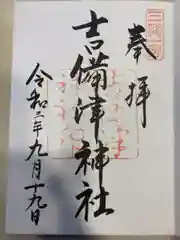 奉拝
吉備津神社
令和三年九月十九日